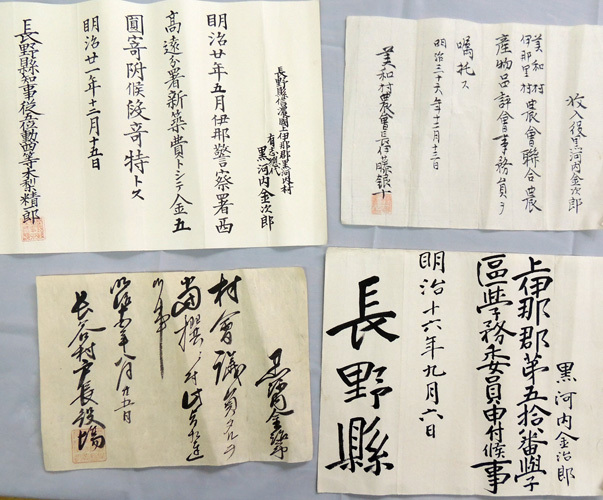 長野縣信濃國上伊那郡黒河内村
有志惣代
黒河内金次郎
明治廿年五月伊那警察署西
高遠分署新築費トシテ金五
圓寄附候段奇特トス
明治廿一年十二月十五日
長野縣知事従五位勲四等木梨精一郎
收入役黒河内金次郎
美和村
伊那里村
農會聯合農
産物品評會事務員ヲ
嘱托ス
明治三十六年十二月十三日
美和村農會長伊藤銀十
黒河内金治郎
村會議員
當撰
八月廿五日
長谷村戸長役場
黒河内金治郎
上伊那郡第五拾八番學
區學務委員申付候事
明治十六年九月六日
長野縣